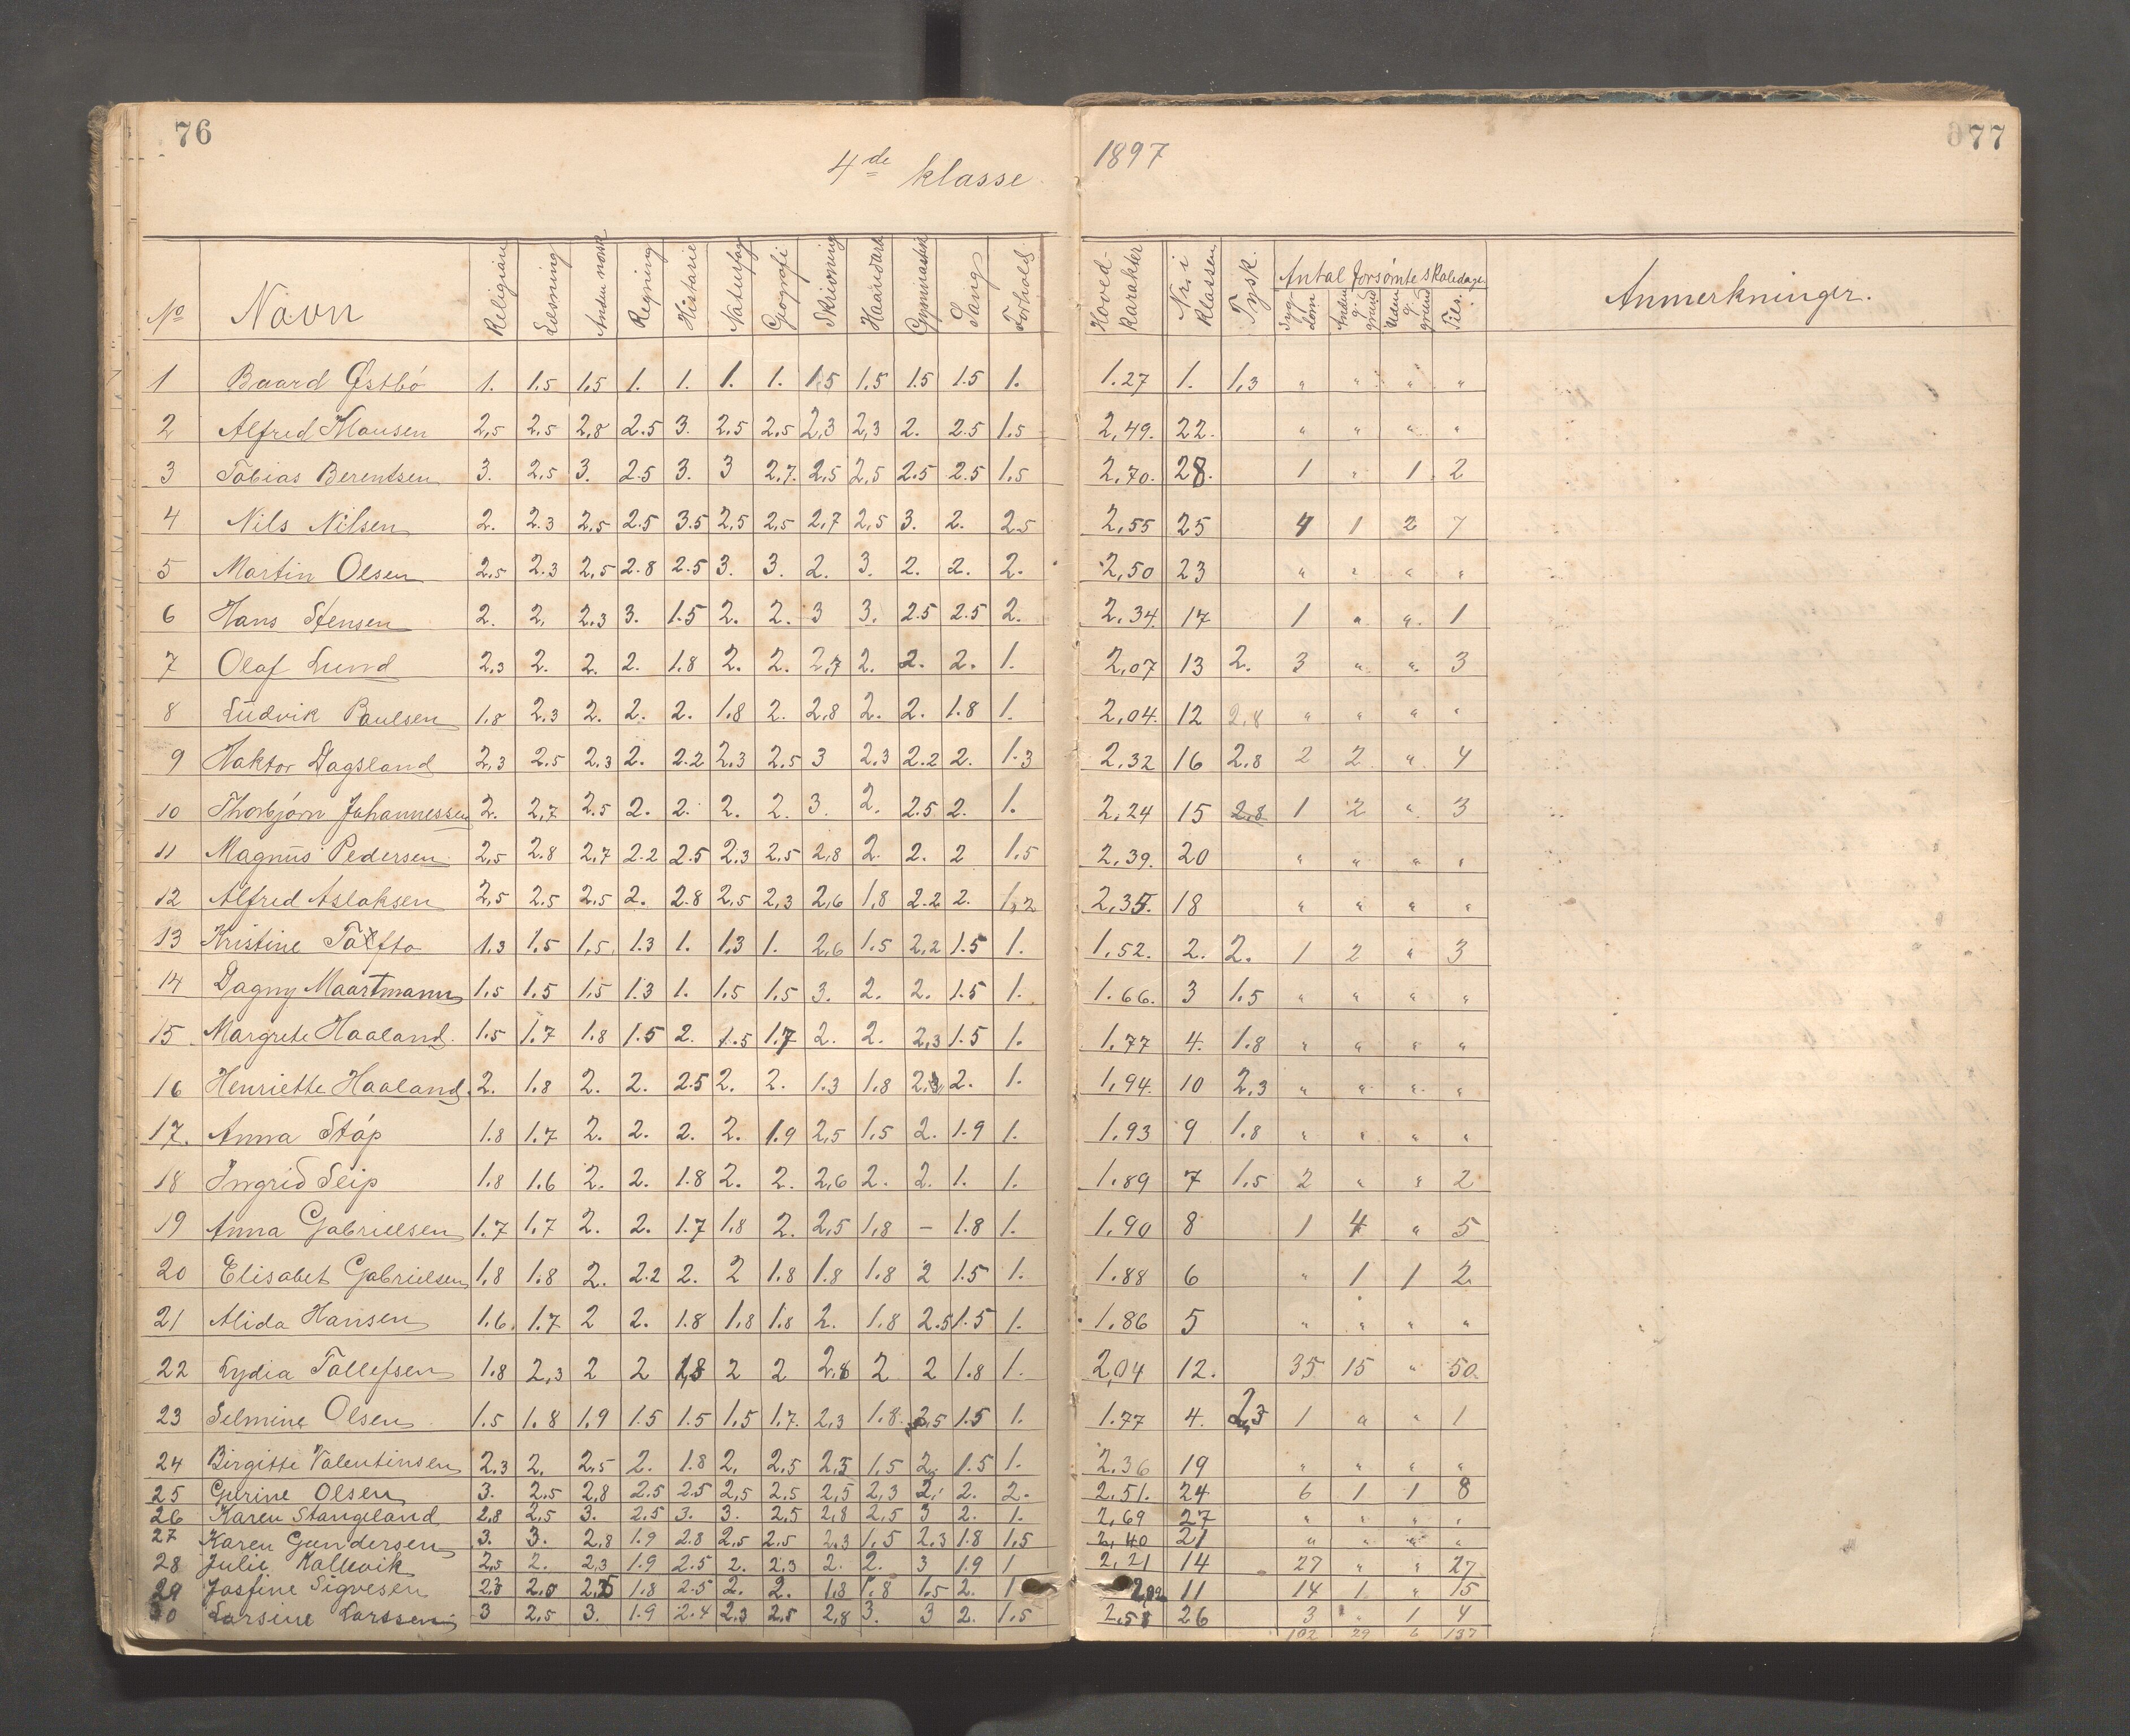 76
4de klasse
1897
77
No Navn Religion Læsning Anden norsk Regning Historie Naturfag Geografi Skrivning Haandarb Gymnastik Sang Forhold Hoved-Karakter Nr. i klassen Tysk. Antal forsømte skoledage Syg-dom Anden g. grund Uden g. grund Tils. Anmerkninger.
1 Baard Østbø 1. 1.5 1.5 1. 1. 1. 1. 1.5 1.5 1.5 1.5 1. 1.27 1. 1,3 " " " "
2 Alfred Klausen 2,5 2.5 2,8 2.5 3. 2.5 2,5 2,3 2,3 2. 2.5 1.5 2,49. 22. " " " "
3 Tobias Berentsen 3. 2,5 3. 2.5 3. 3 2,7. 2,5 2,5 2.5 2.5 1.5 2,70. 28. 1 " 1 2
4 Nils Nilsen 2. 2.3 2,5 2.5 3.5 2,5 2,5 2,7 2,5 3. 2. 2.5 2,55 25 4 1 2 7
5 Martin Olsen 2.5 2.3 2,5 2.8 2.5 3. 3. 2. 3. 2. 2. 2. 2,50 23 " " " "
6 Hans Stensen 2. 2. 2,3 3. 1.5 2. 2. 3 3. 2.5 2.5 2. 2,34. 17 1 " " 1
7 Olaf Lund 2,3 2. 2. 2. 1.8 2. 2. 2,7 2. 2. 2. 1. 2,07 13 2. 3 " " 3
8 Ludvik Paulsen 1.8 2,3 2. 2. 2. 1.8 2. 2,8 2. 2. 1.8 1. 2,04. 12 2,8 " " " "
9 Haktor Dagsland 2,3 2.5 2,3 2. 2.2 2,3 2,5 3 2,3 2.2 2. 1.3 2,32 16 2,8 2 2 " 4
10 Thorbjørn Johannessen 2. 2,7 2.5 2. 2. 2. 2. 3. 2. 2.5 2. 1. 2,24 15 2,8 1 2 " 3
11 Magnus Pedersen 2,5 2.8 2,7 2.2 2.5 2.3 2,5 2,8 2. 2. 2 1,5 2,39. 20 " " " "
12 Alfred Aslaksen 2,5 2.5 2,5 2. 2.8 2,5 2,3 2,6 1,8 2.2 2. 1,2 2,35. 18 " " " "
13 Kristine Toftto 1.3 1.5 1.5 1.3 1. 1.3 1. 2,6 1.5 2,2 1.5 1. 1,52. 2. 2. 1 2 " 3
14 Dagny Maartmann 1.5 1.5 1.5 1.3 1. 1.5 1.5 3. 2. 2. 1.5 1. 1.66. 3 1.5 " " " "
15 Margrete Haaland. 1.5 1.7 1.8 1.5 2. 1.5 1.7 2. 2. 2,3 1.5 1. 1.77 4. 1.8 " " " "
16 Henriette Haaland. 2. 1.8 2. 2. 2.5 2. 2. 1.3 1.8 2.3 2. 1. 1,94. 10 2,3 " " " "
17. Anna Støp 1.8 1.7 2. 2. 2. 2. 1.9 2,5 1.5 2. 1.9 1. 1,93 9 1.8 " " " "
18 Ingrid Seip 1.8 1.6 2. 2. 1.8 2. 2. 2,6 2. 2. 1. 1. 1.89 7 1.5 2 " " 2
19 Anna Gabrielsen 1.7 1.7 2. 2. 1.7 1.8 2. 2,5 1.8 – 1.8 1. 1,90 8 1 4 " 5
20 Elisabet Gabrielsen 1.8 1.8 2. 2.2 2. 2 1.8 1.8 1.8 2 1.5 1. 1.88 6 " 1 1 2
21 Alida Hansen 1.6. 1.7 2 2. 1.8 1.8 1.8 2. 1.8 2.5 1.5 1. 1.86 5 " " " "
22 Lydia Tollefsen 1.8 2,3 2 2 1,8 2 2 2.8 2 2 1.8 1. 2,04 12. 35 15 " 50.
23 Selmine Olsen 1.5 1.8 1.9 1.5 1.5 1.5 1.7. 2,3 1.8. 2,5 1.5 1. 1.77 4. 2,3 1 " " 1
24 Birgitte Valentinsen 2.3 2. 2,5 2. 1.8 2. 2.5 2.5 1.5 2. 1.5 1. 2.36 19 " " " "
25 Gurine Olsen 3. 2.5 2,8 2.5 2.5 2,5 2.5 2,5 2,3 2. 2. 2. 2.51. 24 6 1 1 8
26 Karen Stangeland 2,8 2,5 3. 2.5 3. 3. 2,5 2,8 2,5 3 2. 1. 2,69 27 " " " "
27 Karen Gundersen 3. 3. 2,8 1.9 2.8 2,5 2.5 2.3 1.5 2.3 1.8 1,5 2,40 21 " " " "
28 Julie Kallevik 2,5 2. 2,3 1.9 2.5 2. 2,3 2. 2. 3 1.9 1 2,21 14 27 " " 27
29 Josfine Sigvesen 2.3 2.0 2,5 1.8 2.5 2. 2. 1.8 1.8 1.5 2. 1 11 14 1 " 15
30 Larsine Larssen 3 2,5 3. 1.9 2.4 2,3 2,5 2,8 3. 3 2. 1.5 2,58 26 3 " 1 4
102 29 6 137